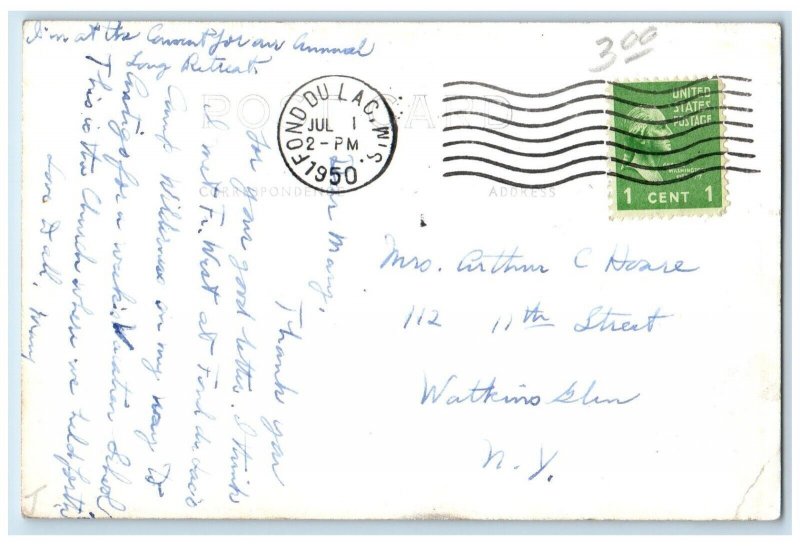 I'm at the Convent for our Annual
Long Retreat.
3.00
POST CARD
CORRESPONDENCE
ADDRESS
FOND DU LAC, WIS.
JUL 1
2-PM
1950
UNITED
STATES
POSTAGE
WASHINGTON
1 CENT 1
Dear Mary,
Thank you
for your good letter. I think
I met Fr. West at Fond du Lac's
Camp Wilderness on my way to
for a week's Vacation School
This is the Church where we held forth
Love to all,
Mrs. Arthur C Hoare
112 11th Street
Watkins Glen
N.Y.